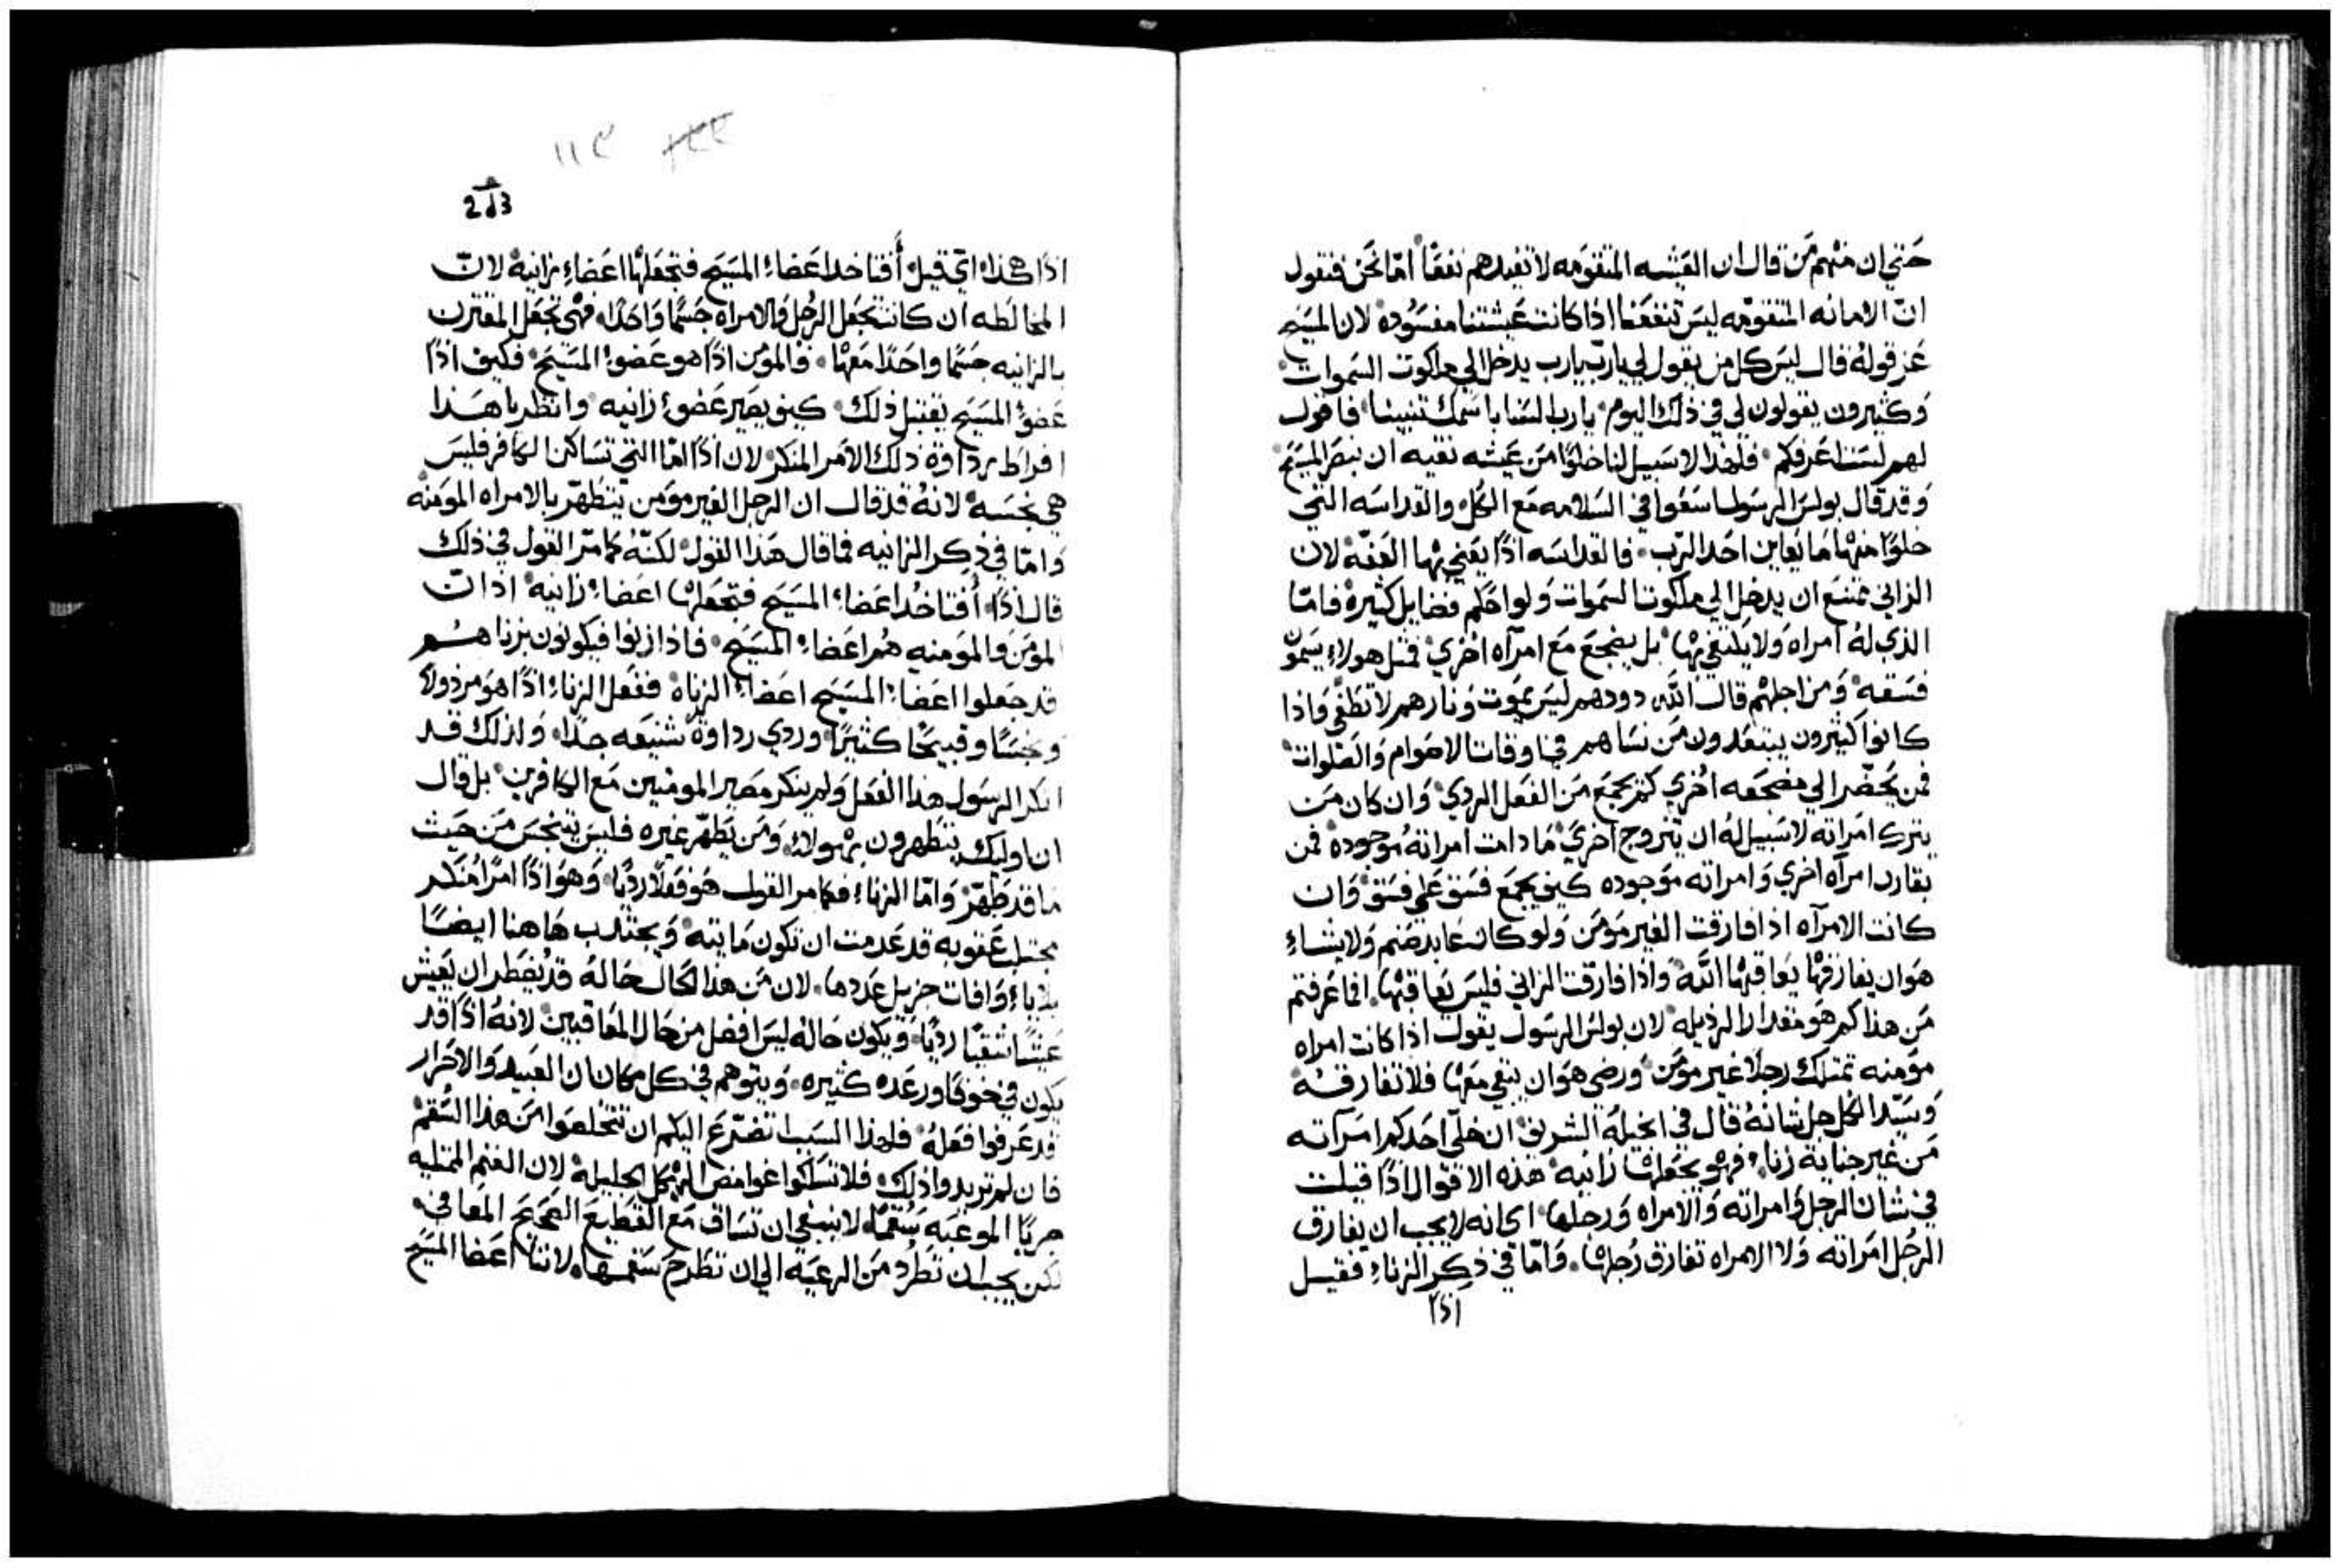 حَتي ان منهم مَن قال ان العَيشه المتقومه لا تفيدهم نفعًا امّا نحَن فنقول
انّ الامانه المتقومّه ليسَ تنفعَنا اذا كانت عَيشتنا مفسَوده لان المسَيح
عَز قولهُ قال ليسَ كل من يقول لي ياربّ يارب يدخل الي ملكوت السَموات
وَكثيرون يقولون لي في ذلك اليوم يارب السَنا باسمك تنبينا فاقول
لهم لسَت اعَرفكم فلهذا لا سَبيل لنا خلوًا مَن عَيشه نقيه ان نبصَر المسَيح
وَقد قال بولسَ الرسَول اسَعَوا في السَلامه مَع الكل والقداسَه التي
خلوًا منها مَا يعَاين احَد الربّ فالقداسَه اذًا يعَني بها العَفّه لان
الزاني ممتنعَ ان يدخل الي ملكوت السَموات وَلو احَكم فضايل كثيرهْ فامّا
الذي لهُ امراه وَلا يكتفي بها بل يضجعَ مَع امرآه اخري فمثل هولاءِ يسَمون
فسَقه وَمن اجلهم قال الله دودهم ليسَ يموَت وَنارهم لا تطفي وَاذا
كانوا كثيرون يبتعَدون مَن نسَاهم في اوقات الاصَوام وَالصَلوات
فمن يحَضّر الي مضجعَه اخري كم يجمَع مَن الفعَل الردي وَان كان مَن
يترك امَراته لا سَبيل لهُ ان يتزوج اخري مَا دامت امراتهُ موجوده فمن
يقارن امرآه اخري وَامراته موَجوده كيف يجمَع فسَق عَلي فسَق وَان
كانت الامرآه اذا فارقت الغير موَمَن وَلو كان عَابد صَنم وَلا يشاءِ
هوَ ان يفارقها يعَاقبها الله وَاذا فارقت الزاني فليسَ يعَاقبها افما عَرفتم
مَن هذا كم هو مقدار الرذيله لان بولسَ الرسَول يقول اذا كانت امراه
موَمنه تمتلك رجلًا غير موَمَن ورضي هوَ ان يبقي معَها فلا تفارقهُ
وَسَيّد الكل جل شانهُ قال في انجيلهَ الشريف ان خلّي احَدكم امَرآته
مَن غير جناية زناء فهو يجعَلها زانيه هذه الاقوال اذًا قيلت
في شان الرجل وَامراته وَالامراه وَرجلها اي انه لا يجب ان يفارق
الرجُل امَراته وَلا الامراه تفارق رُجلها وَامّا في ذكِر الزناءِ فقيل
اذًا
اذًا هكذا اي قيل أَفتاخد اعَضاءَ المسَيح فتجعَلها اعَضاءِ زانيه لانّ
المخالَطه ان كانت تجعَل الرجُل وَالامراه جسَمًا وَاحَدًا فهي تجعَل المقترن
بالزانيه جسَمًا واحَدًا معَها فالموَمن اذًا هو عَضوُ المسَيحَ فكيف اذًا
عَضوُ المسَيح يقتبل ذلك كيف يصَير عَضوُ زانيه وانظر يا هَذا
افراط رداوة ذلك الامَر المنكر لان اذًا امّا التي تسَاكن الكافر فليسَ
هي نجسَه لانهُ قد قال ان الرجل الغير موَمن يتطهّر بالامراه الموَمنه
وَامّا في ذكِر الزانيه فما قال هَذا القول لكنّهُ كما مرّ القول في ذلك
قال اذًا أَفتاخُد اعَضاءِ المسَيح فتجعَلها اعَضاءِ زانيه اذ انّ
الموَمَن وَالموَمنه هُم اعَضاءِ المسَيح فاذا زنوا فيكونون بزناهُم
قد جعَلوا اعَضاءِ المسَيح اعَضاءِ الزناه ففعَل الزناءِ اذًا هوَ مرذولًا
وَنجسًا وقبيحًا كثيرًا وردي رداوةً شنيعَه جدًا وَلذلك قد
انكر الرسَول هذا الفعَل وَلم ينكر مصَير المومنين مَع الكافرين بل قال
ان اوليك يتطهرون بهولاءِ وَمَن يطَهّر غيره فليسَ يتنجسَ مَن حَيث
مَا قد طَهّر وَامّا الزناءِ فكما مر القول هَو فعَلًا رديًا وَهوَ اذًا امرًا مُنكر
عَقوبه قد عَدمت ان تكون مَايته وَيجتلب هَاهنا ايضًا
بلاياءِ وَافات جزيل عَددها لان مَن هذا الحَال حَالهُ قد يُضطر ان يعَيش
عَيشًا شقيًا رديًا وَيكون حَالهُ ليسَ افضل من حَال المعَاقبين لانهُ اذًا قد
يكون في خوفًا ورعَده كثيره وَيتوهم في كل مكان ان العبَيد وَالاحَرار
قد عَرفوا فعَلهُ فلهذا السَبب اتضرّع اليكم ان تتخلصَوا مَن هذا السُقم
فان لم تريدوا ذلك فلا تسَلكوا غوامض الهيكل الجليله لان الغنم الممتليه
جربًا الموعَبَه سُقمًا لا ينبغي ان تسَاق مَع القَطيعَ الصَحيحَ المعَافي
لكن يجب ان تُطرُد مَن الرعَيَه الي ان تطرحَ سَقمها لاننا اعَضا المسَيح